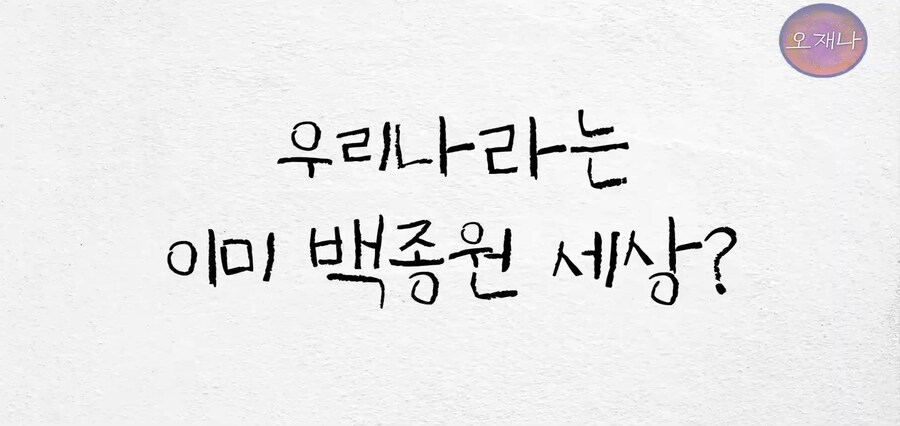 오재나
우리나라는
이미 백종원 세상?